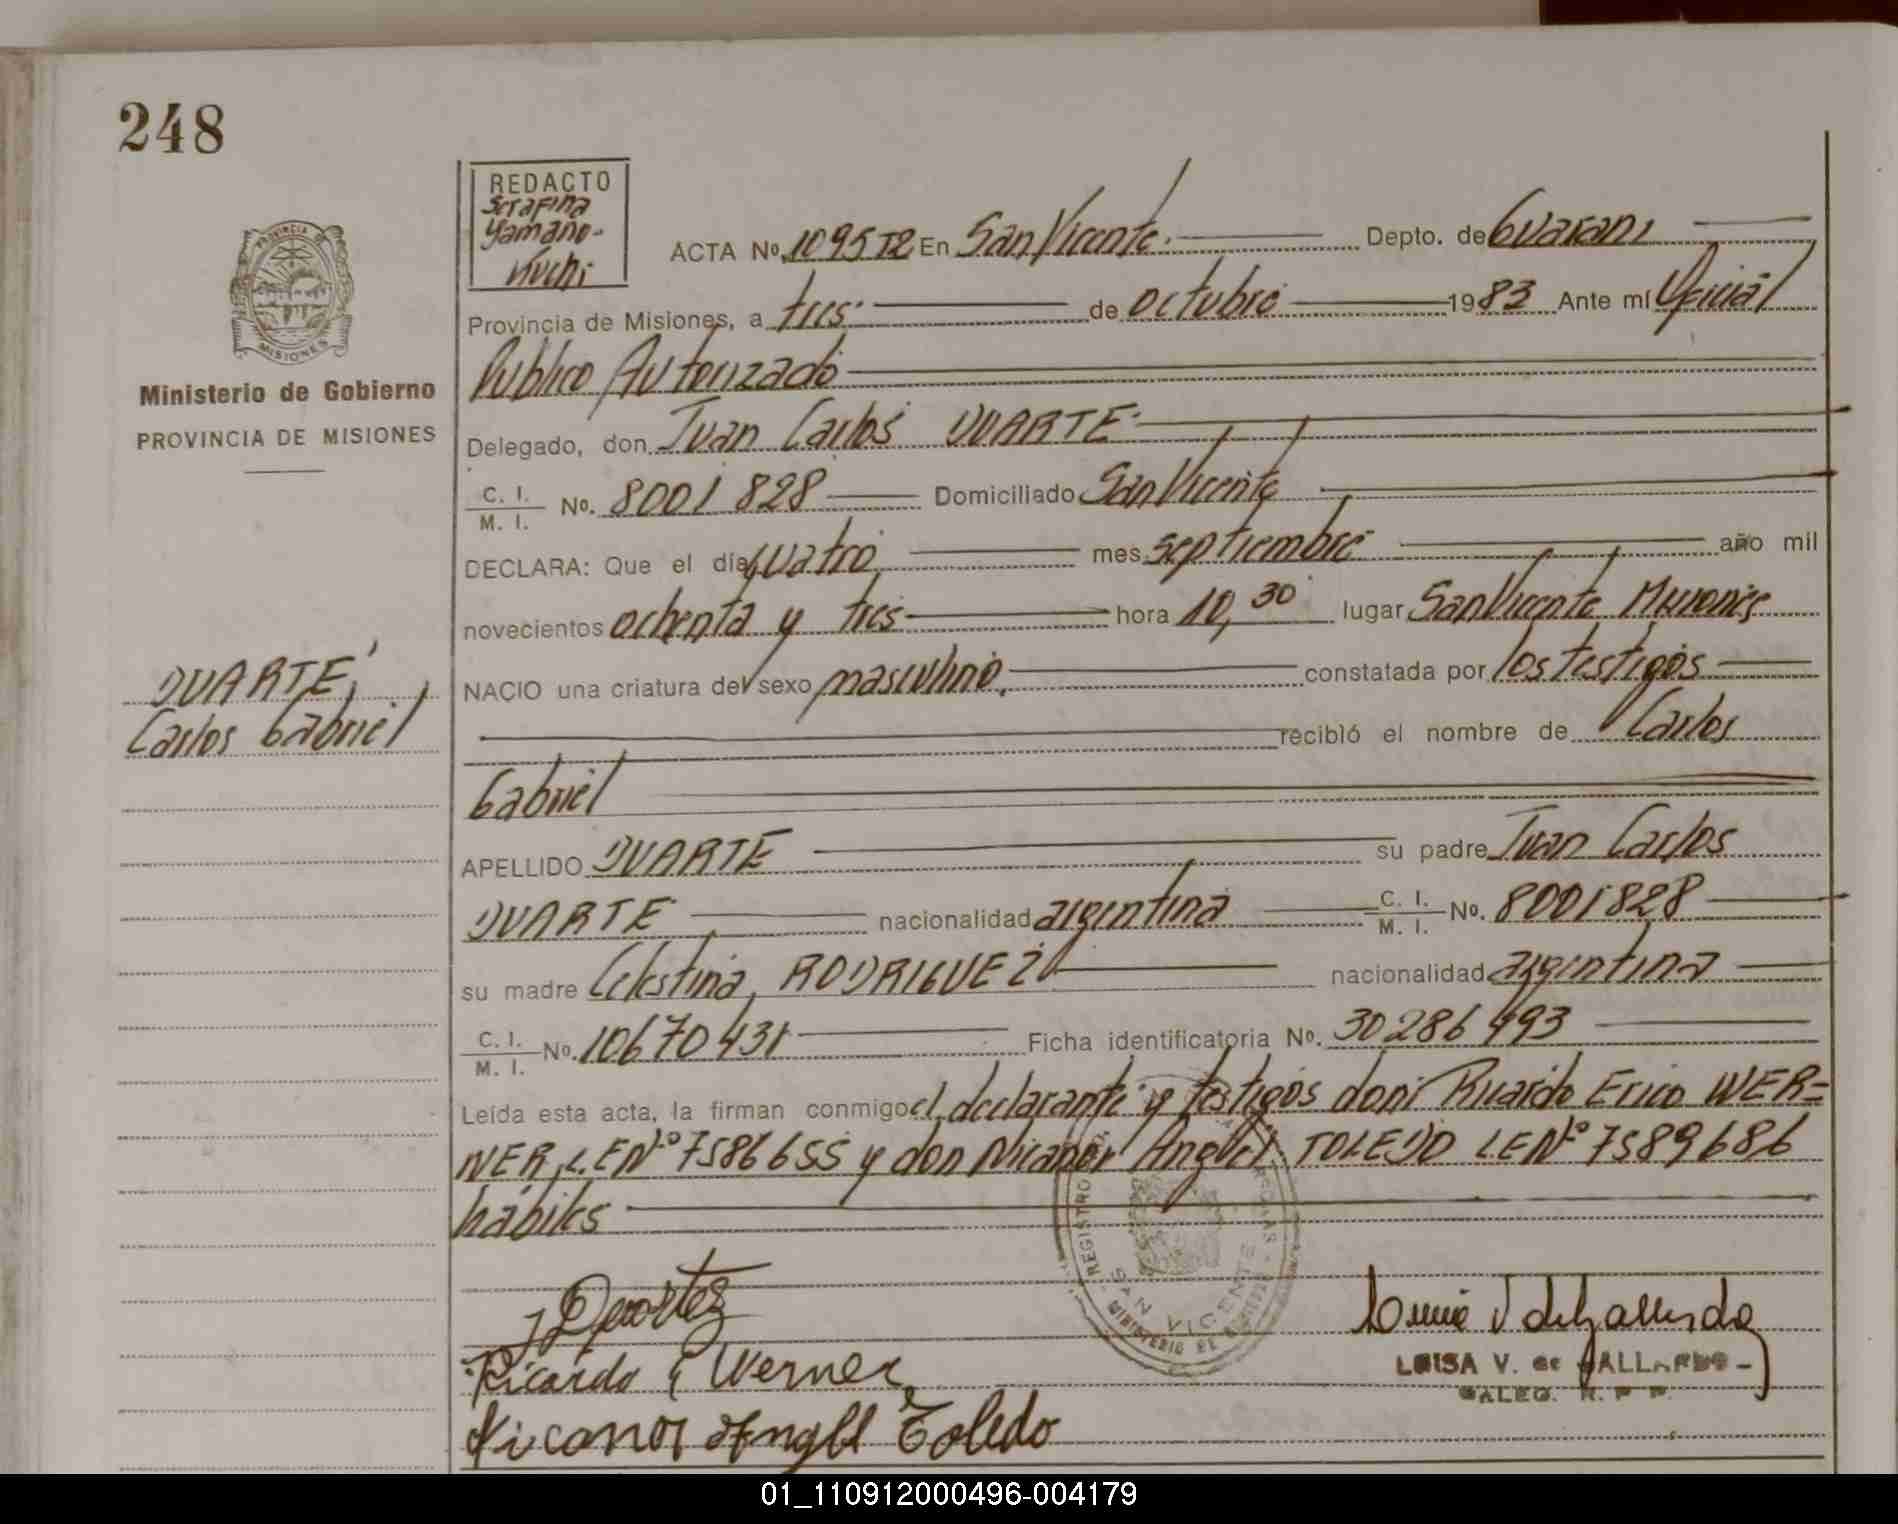 248
REDACTO
Serafina
Yamaño-
Kuchi
PROVINCIA DE
MISIONES
Ministerio de Gobierno
PROVINCIA DE MISIONES
ACTA No. 1095 T2 En San Vicente. Depto. de Guarani
Provincia de Misiones, a tres de octubre 1983 Ante mí Oficial
Publico Autorizado
Delegado, don Juan Carlos DUARTE
C. I.
M. I. No. 8001 828 Domiciliado San Vicente
DECLARA: Que el día cuatro mes septiembre año mil
novecientos ochenta y tres hora 10,30 lugar San Vicente Misiones
NACIO una criatura del sexo masculino. constatada por los testigos
recibió el nombre de Carlos
Gabriel
APELLIDO DUARTE su padre Juan Carlos
DUARTE nacionalidad argentina C. I.
M. I. No. 8001828
su madre Celestina RODRIGUEZ nacionalidad argentina
C. I.
M. I. No. 10670431 Ficha identificatoria No. 30286493
Leída esta acta, la firman conmigo el declarante y testigos don: Ricardo Erico WER=
NER, L.E Nº 7586655 y don Nicanor Angel TOLEDO LE Nº 7589686
hábiles
DUARTE,
Carlos Gabriel
REGISTRO
SAN VICENTE
MINISTERIO DE
Ricardo E Werner
Nicanor Angel Toledo
LUISA V. de GALLARDO
R. P. P.
01_110912000496-004179